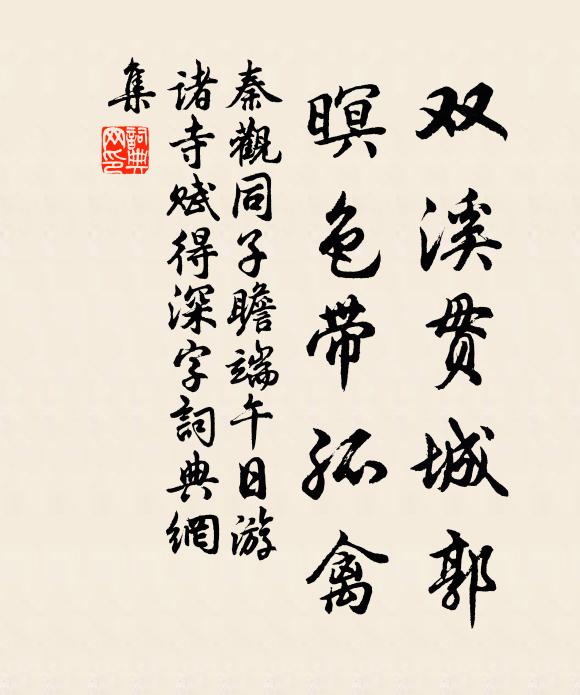 双溪贯城郭
暝色带孤禽
秦觀同子瞻端午日游
诸寺赋得深字詞典網
集
詞典
网印